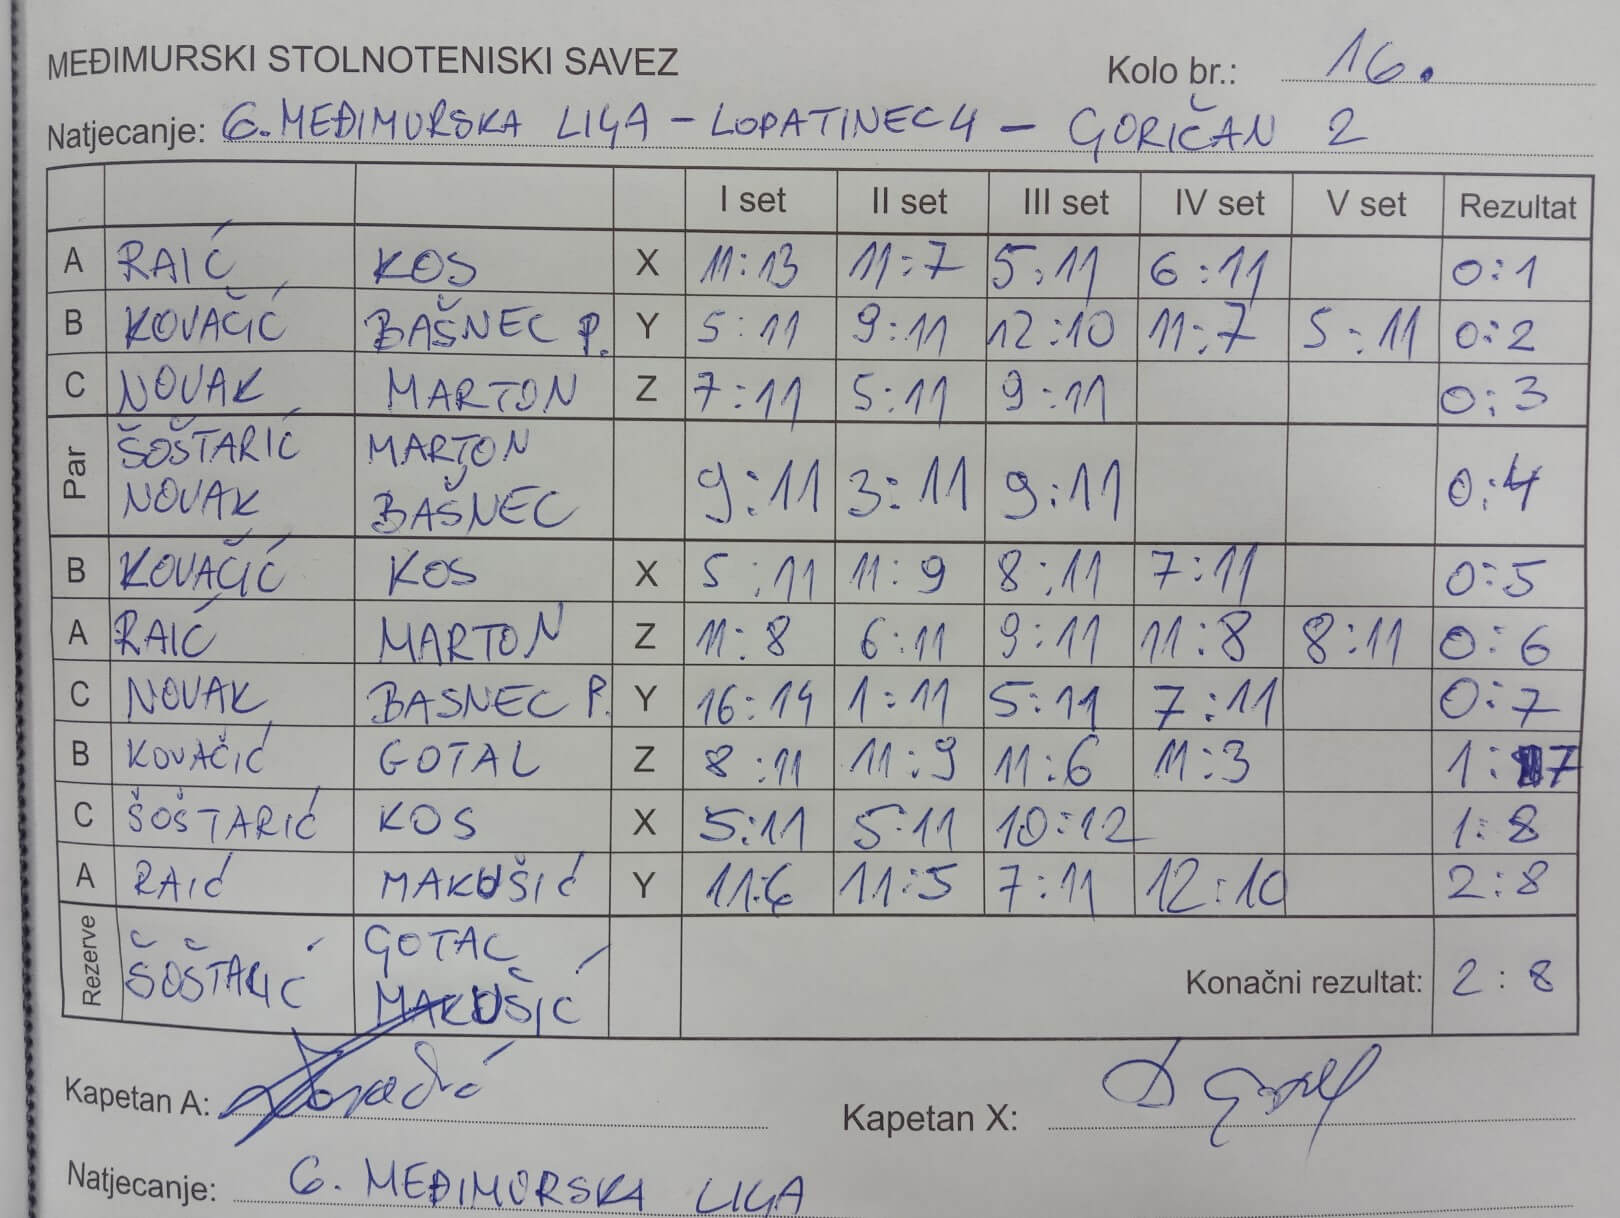 MEĐIMURSKI STOLNOTENISKI SAVEZ Kolo br.: 16.
Natjecanje: 6. MEĐIMURSKA LIGA - LOPATINEC 4 - GORIČAN 2
I set II set III set IV set V set Rezultat
A RAIĆ KOS X 11:13 11:7 5:11 6:11 0:1
B KOVAČIĆ BAŠNEC P. Y 5:11 9:11 12:10 11:7 5:11 0:2
C NOVAK MARTON Z 7:11 5:11 9:11 0:3
Par ŠOŠTARIĆ NOVAK MARTON BAŠNEC 9:11 3:11 9:11 0:4
B KOVAČIĆ KOS X 5:11 11:9 8:11 7:11 0:5
A RAIĆ MARTON Z 11:8 6:11 9:11 11:8 8:11 0:6
C NOVAK BASNEC P. Y 16:14 1:11 5:11 7:11 0:7
B KOVAČIĆ GOTAL Z 8:11 11:9 11:6 11:3 1:7
C ŠOŠTARIĆ KOS X 5:11 5:11 10:12 1:8
A RAIĆ MAKUŠIĆ Y 11:6 11:5 7:11 12:10 2:8
Rezerve ŠOŠTARIĆ GOTAL MAKUŠIĆ Konačni rezultat: 2:8
Kapetan A: Kapetan X:
Natjecanje: 6. MEĐIMURSKA LIGA